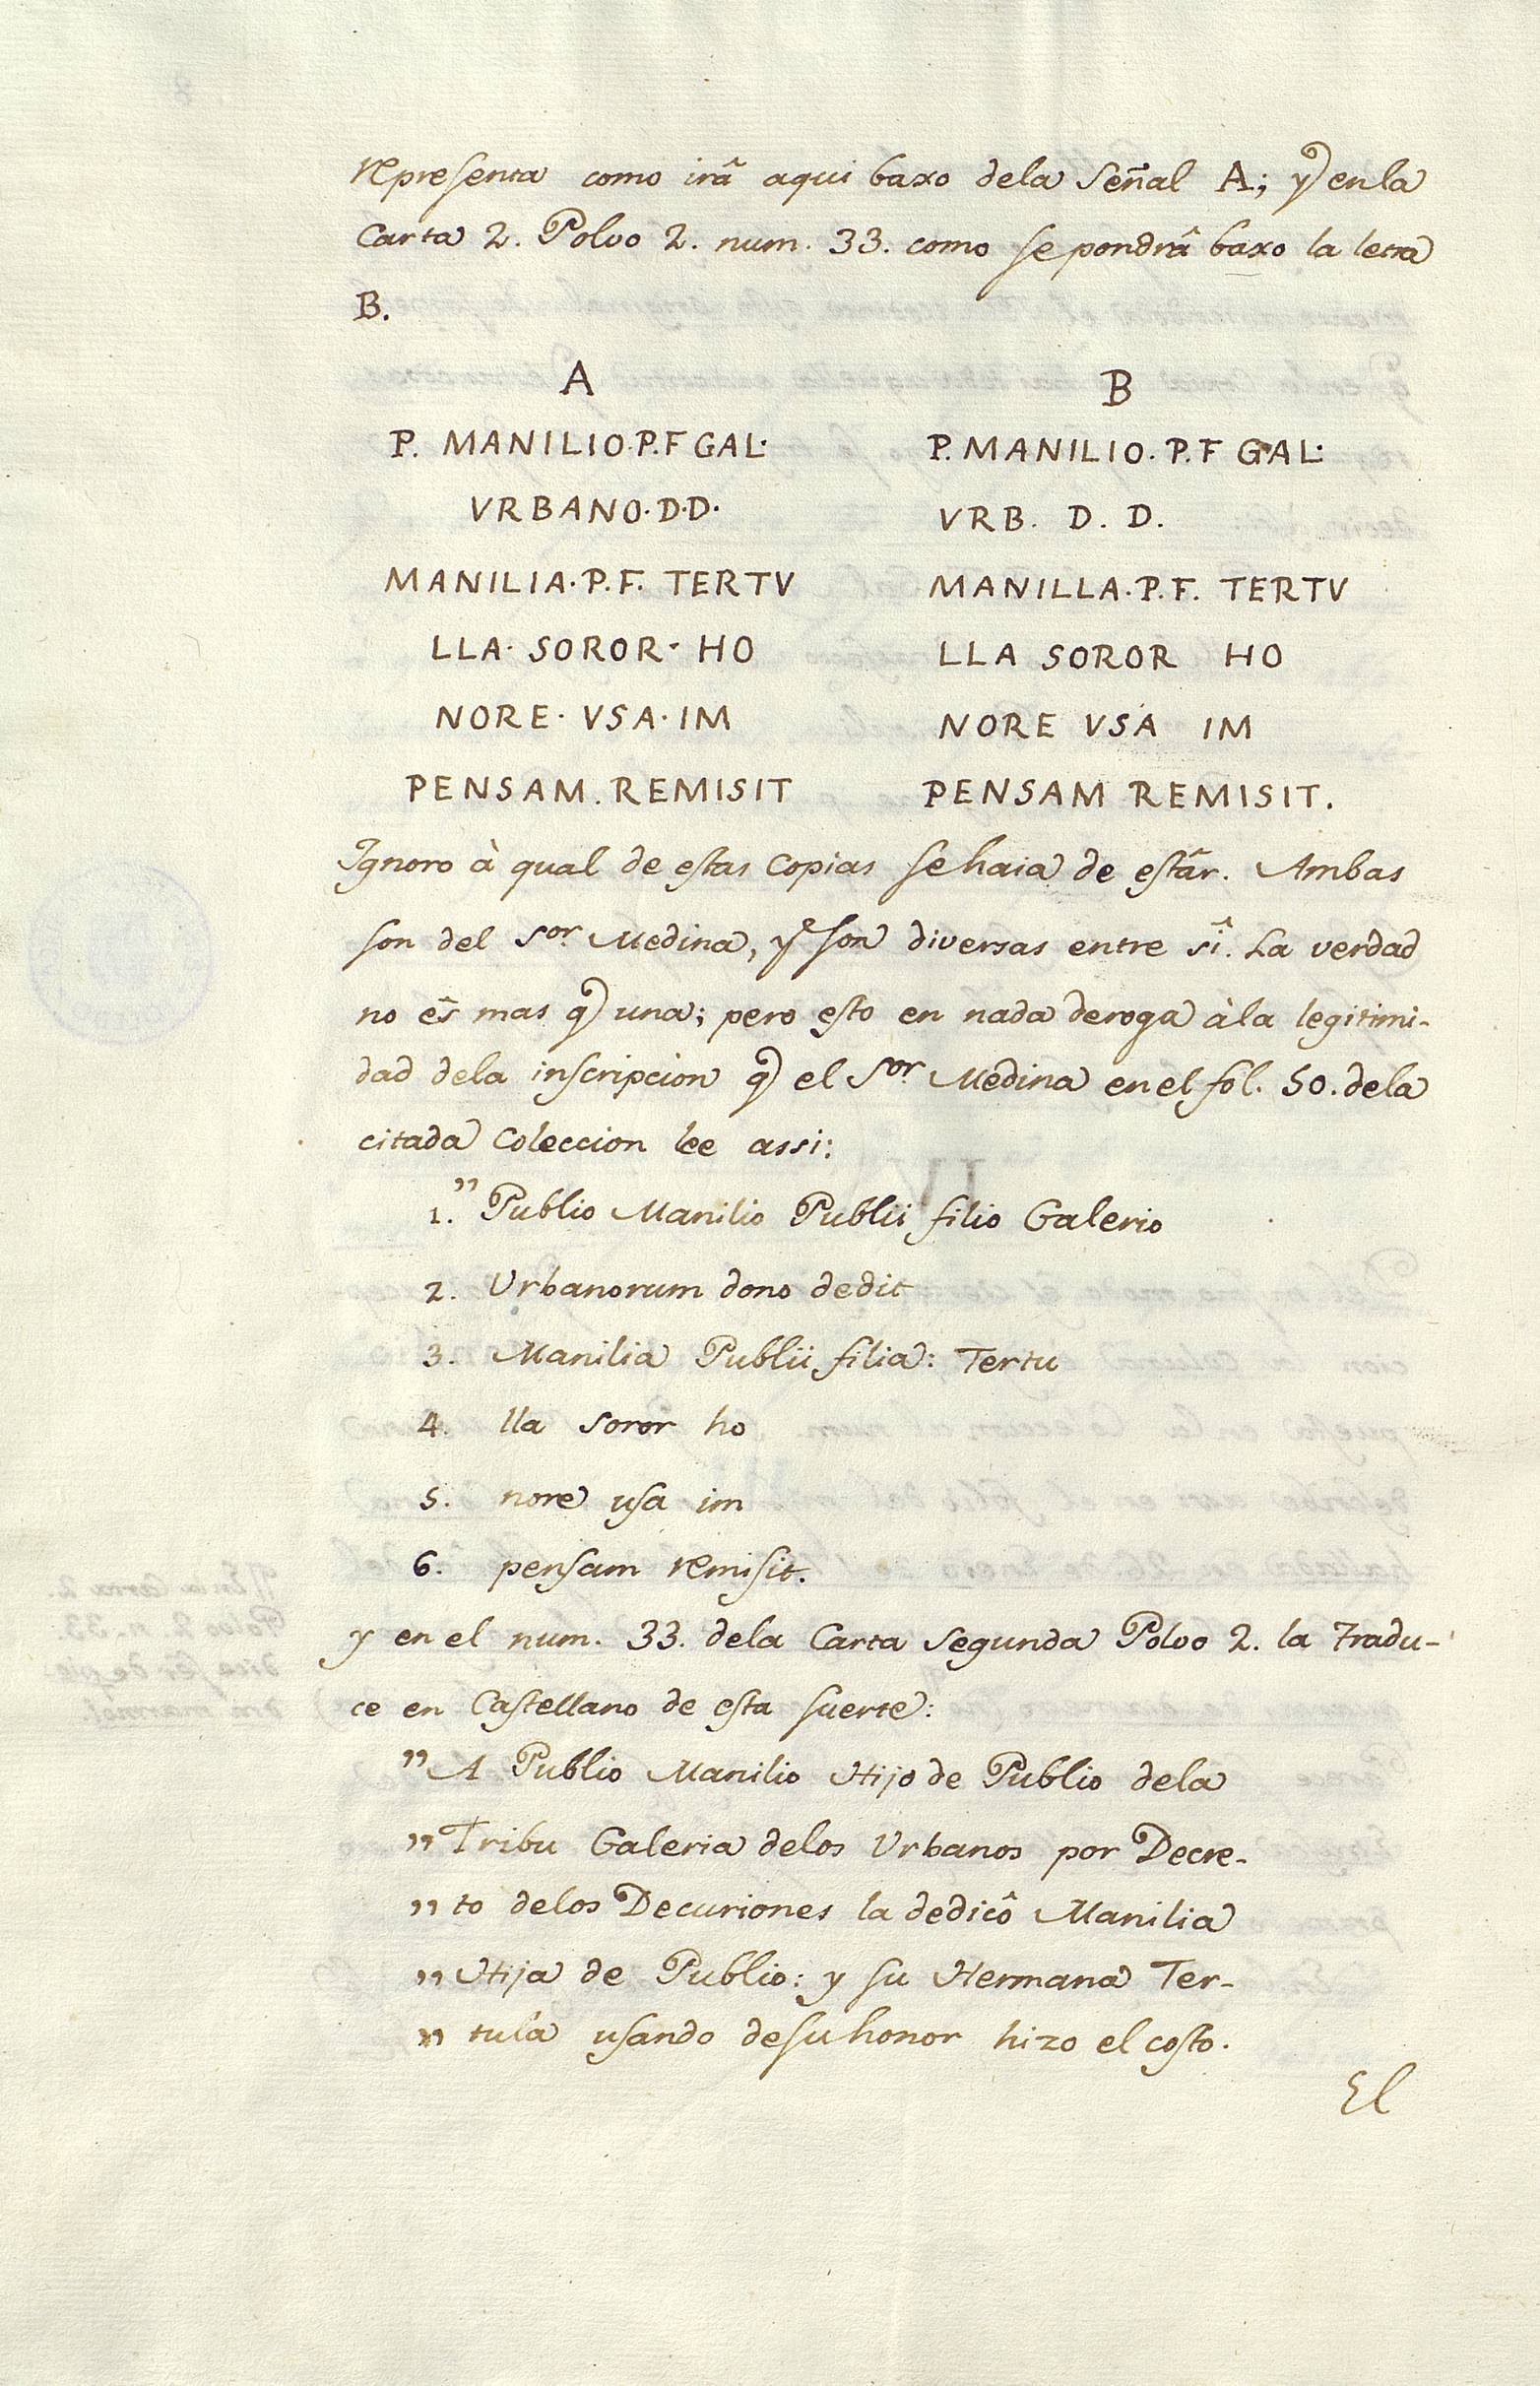 representa como irâ aqui baxo dela Señal A; y en la
Carta 2. Polvo 2. num. 33. como se pondrâ baxo la letra
B.
A
P. MANILIO.P.F GAL.
VRBANO.D.D.
MANILIA.P.F. TERTV
LLA. SOROR. HO
NORE. VSA. IM
PENSAM. REMISIT
B
P. MANILIO. P. F GAL.
VRB. D. D.
MANILLA. P. F. TERTV
LLA SOROR HO
NORE VSA IM
PENSAM REMISIT.
Ignoro à qual de estas Copias se haia de estâr. Ambas
son del Sor. Medina, y son diversas entre sî. La verdad
no ês mas q una; pero esto en nada deroga àla legitimi-
dad dela inscripcion q el Sor. Medina en el fol. 50. dela
citada Coleccion lee assi:
1. " Publio Manilio Publii filio Galerio
2. Urbanorum dono dedit
3. Manilia Publii filia: Tertu
4. lla soror ho
5. nore usa im
6. pensam remisit.
y en el num. 33. dela Carta Segunda Polvo 2. la Tradu-
ce en Castellano de esta suerte:
" A Publio Manilio Hijo de Publio dela
" Tribu Galeria delos Urbanos por Decre-
" to delos Decuriones la dedicô Manilia
" Hija de Publio: y su Hermana Ter-
" tula usando de su honor hizo el costo.
El